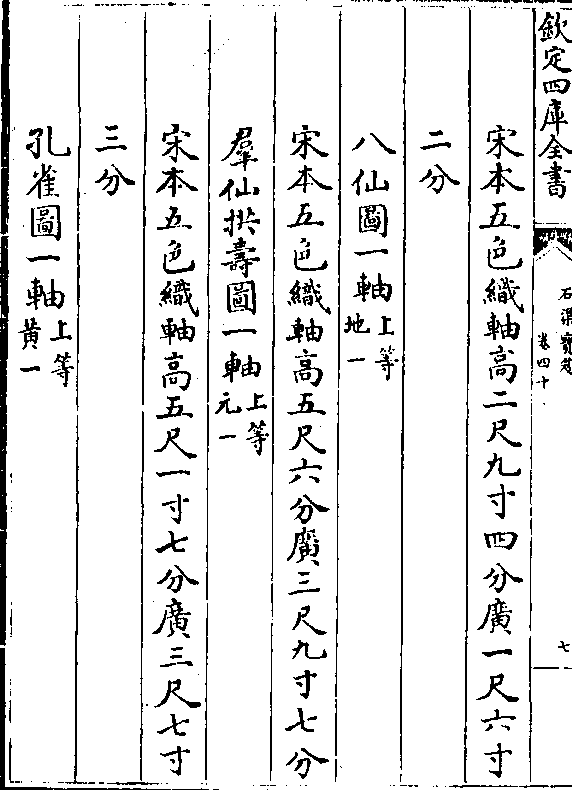 欽定四庫全書
石渠寶笈
卷四十
七
宋本五色織軸高二尺九寸四分廣一尺六寸
二分
八仙圖一軸上等
地一
宋本五色織軸高五尺六分廣三尺九寸七分
羣仙拱壽圖一軸上等
元一
宋本五色織軸高五尺一寸七分廣三尺七寸
三分
孔雀圖一軸上等
黄一